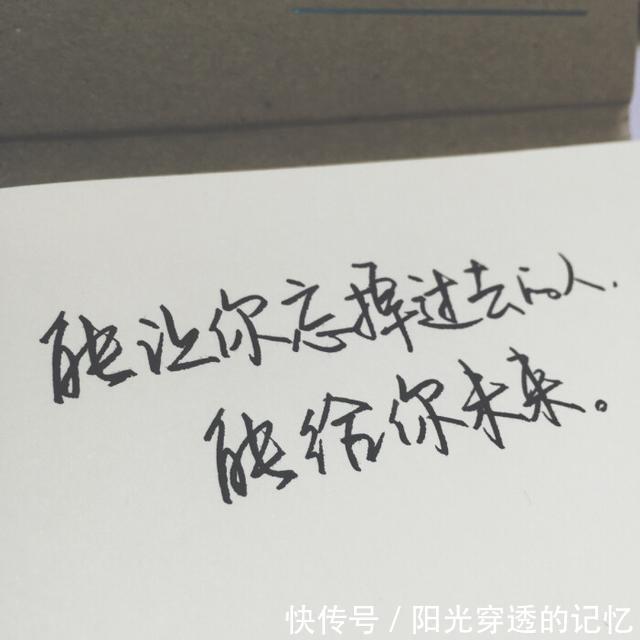 能让你忘掉过去的人.
能给你未来。
快传号/阳光穿透的记忆